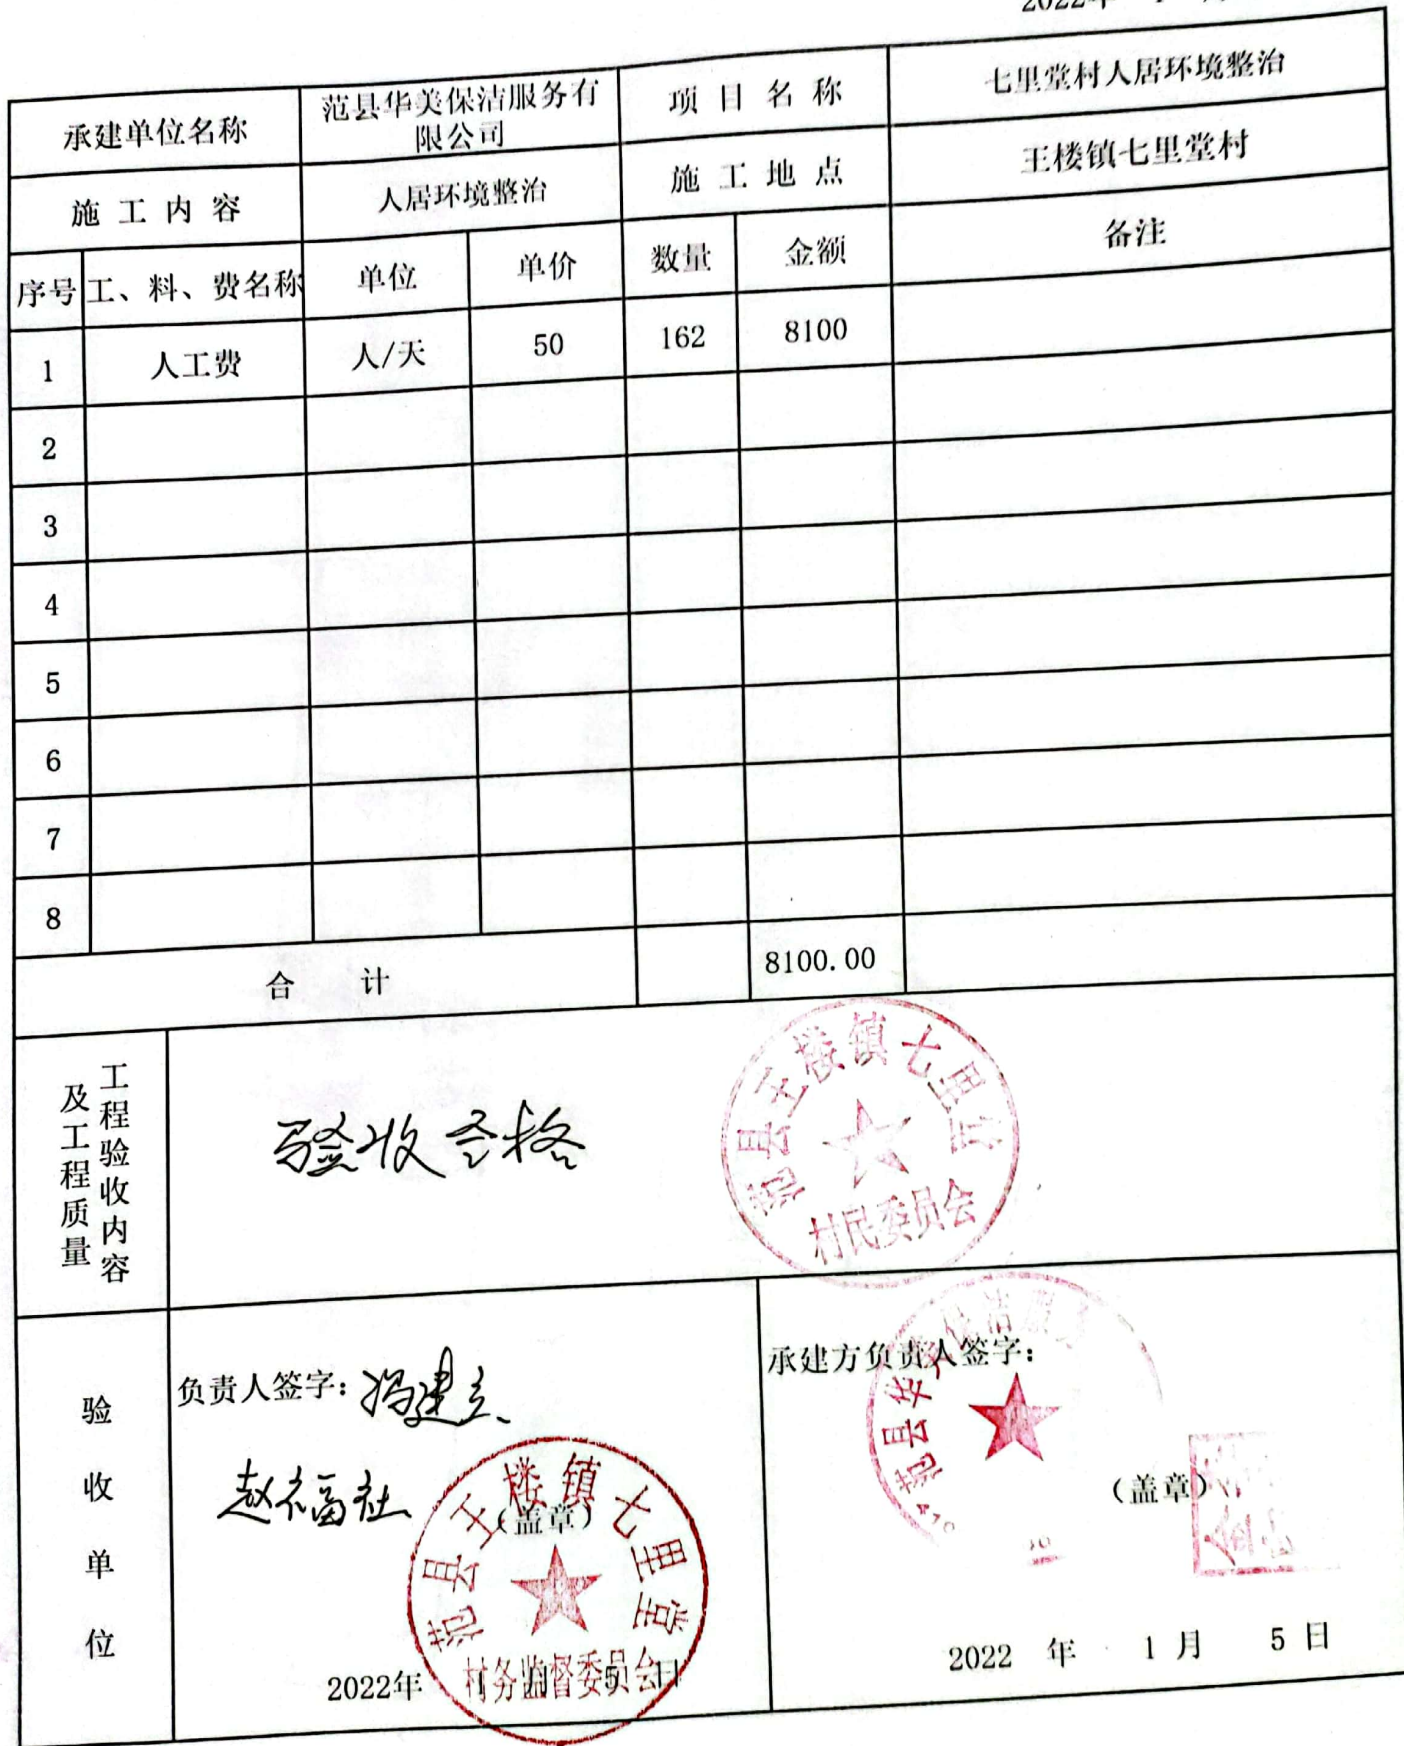 2022年 1
承建单位名称 范县华美保洁服务有限公司 项目名称 七里堂村人居环境整治
施工内容 人居环境整治 施工地点 王楼镇七里堂村
序号 工、料、费名称 单位 单价 数量 金额 备注
1 人工费 人/天 50 162 8100
2
3
4
5
6
7
8
合计 8100.00
工程验收内容及工程质量
验收合格
范县王楼镇七里堂
村民委员会
验收单位
负责人签字：冯建立
赵福社
（盖章）
范县王楼镇七里堂
村务监督委员会
2022年 1月 5日
承建方负责人签字：
范县华美保洁服务
（盖章）
2022 年 1 月 5 日